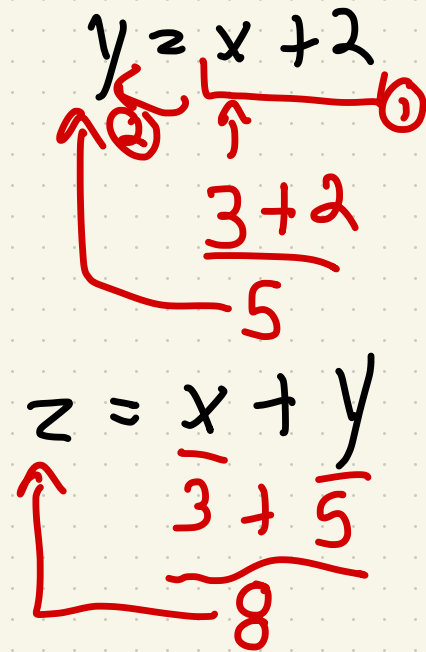 y = x + 2
② ①
3 + 2
5
z = x + y
3 + 5
8